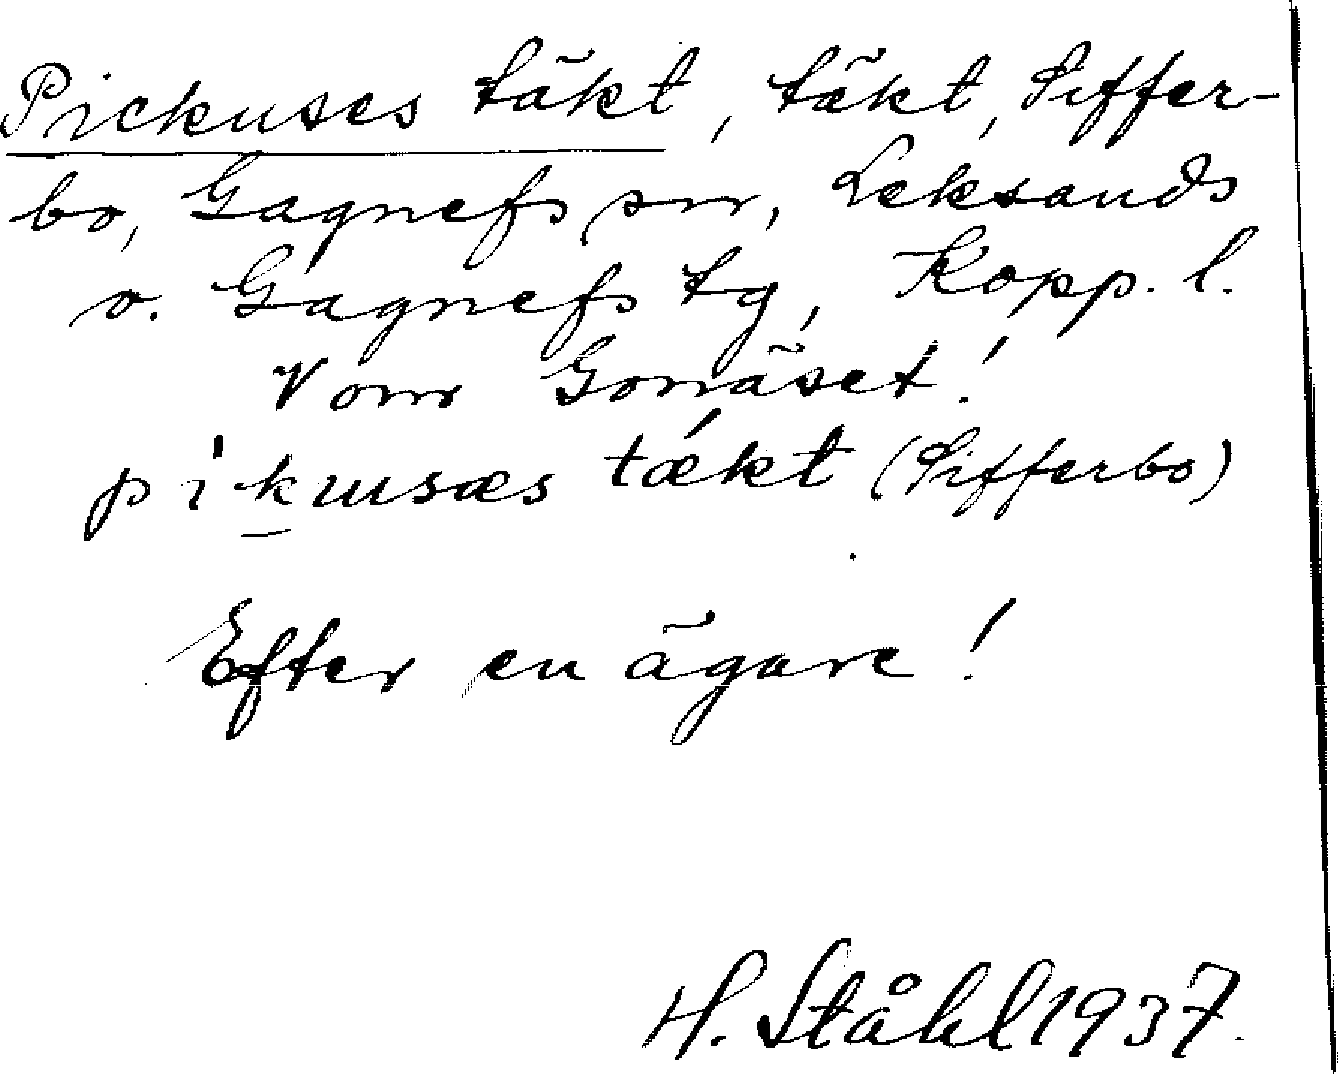 Pickuses täkt, täkt, Siffer-
bo, Gagnefs sn, Leksands
o. Gagnefs tg, Kopp. l.
Vom Gonäset!
pikusæs tækt (Sifferbo)
Efter en ägare!
H. Ståhl 1937.